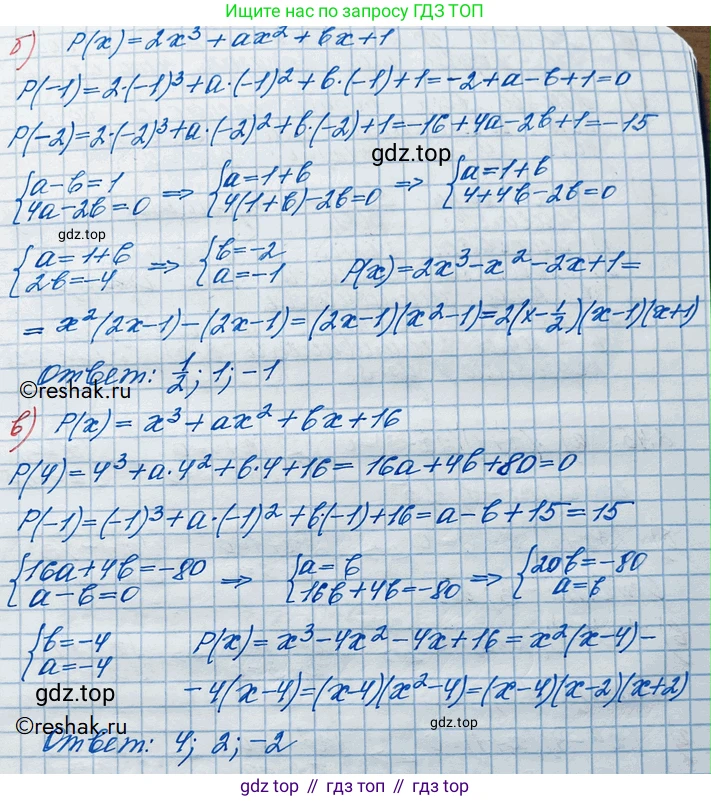 Ищите нас по запросу ГДЗ ТОП
б) P(x)=2x³+ax²+bx+1
P(-1)=2·(-1)³+a·(-1)²+b·(-1)+1=-2+a-b+1=0
P(-2)=2·(-2)³+a·(-2)²+b·(-2)+1=-16+4a-2b+1=-15
gdz.top
{a-b=1 {4a-2b=0 => {a=1+b {4(1+b)-2b=0 => {a=1+b {4+4b-2b=0
gdz.top
{a=1+b {2b=-4 => {b=-2 {a=-1 P(x)=2x³-x²-2x+1=
=x²(2x-1)-(2x-1)=(2x-1)(x²-1)=2(x-1/2)(x-1)(x+1)
Ответ: 1/2; 1; -1
©reshak.ru
в) P(x)=x³+ax²+bx+16
P(4)=4³+a·4²+b·4+16=16a+4b+80=0
P(-1)=(-1)³+a·(-1)²+b·(-1)+16=a-b+15=15
{16a+4b=-80 {a-b=0 => {a=b {16b+4b=-80 => {20b=-80 {a=b
{b=-4 {a=-4 P(x)=x³-4x²-4x+16=x²(x-4)-
-4(x-4)=(x-4)(x²-4)=(x-4)(x-2)(x+2)
gdz.top
gdz.top
©reshak.ru
Ответ: 4; 2; -2
gdz top // гдз топ // gdz.top